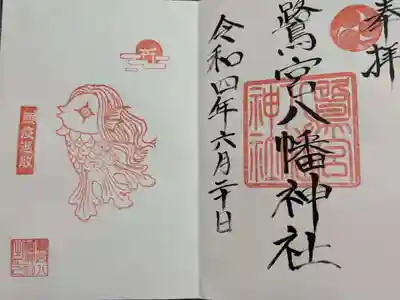 奉拝
鷺宮八幡神社
令和四年六月二十日
鷺宮
神社
悪疫退散